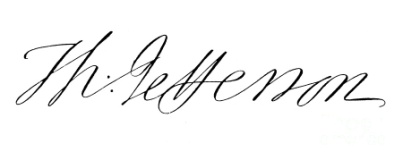 Th. Jefferson